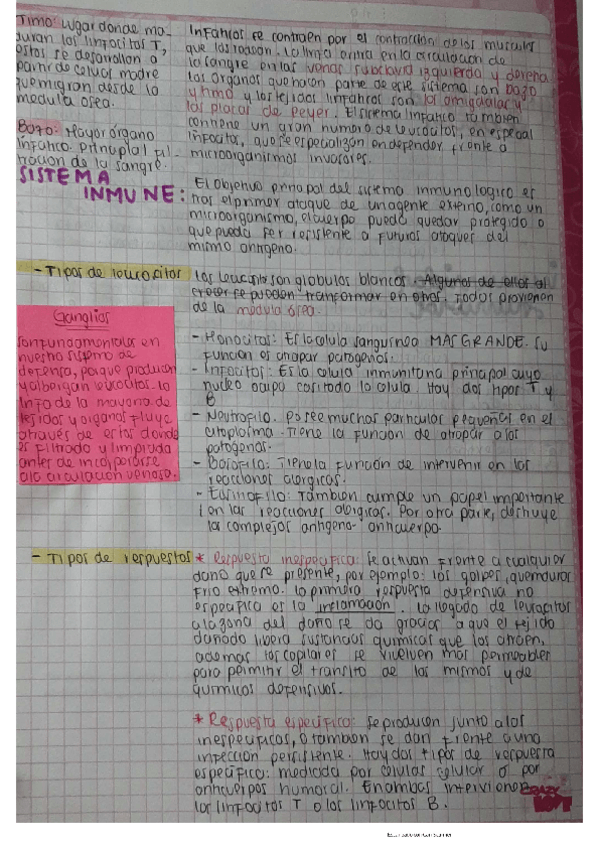 Timo: Lugar donde ma-
duran los linfocitos T,
estos se desarrollan a
partir de celulas madre
que migran desde la
medula osea.
Bazo: Mayor órgano
linfatico. Principal fil-
tracion de la sangre.
linfaticos se contraen por el contracción de los musculos
que los rodean. La linfa entra en la circulacion de
la sangre en las venas subclavia izquierda y derecha
los organos que hacen parte de este sistema son bazo
y timo y los tejidos linfaticos son las amigdalas y
las placas de peyer. El sistema linfatico tambien
contiene un gran numero de leucocitos, en especial
linfocitos, que se especializan en defender frente a
microorganismos invasores.
SISTEMA
INMUNE:
El objetivo principal del sistema inmunologico es
tras el primer ataque de un agente externo, como un
microorganismo, el cuerpo pueda quedar protegido o
que pueda ser resistente a futuros ataques del
mismo antigeno.
- Tipos de leucocitos
Los leucocitos son globulos blancos. Algunos de ellos al
crecer se pueden transformar en otros. Todos provienen
de la medula osea.
Ganglios
Son fundamentales en
nuestro sistema de
defensa, porque producen
y albergan leucocitos. La
linfa de la mayoria de
tejidos y organos fluye
atraves de estos donde
es filtrado y limpiada
antes de incorporarse
a la circulacion venosa.
- Monocitos: Es la celula sanguinea MAS GRANDE. Su
funcion es atrapar patogenos.
- Linfocitos: Es la celula inmunitaria principal cuyo
nucleo ocupa casi toda la celula. Hay dos tipos T y
B
- Neutrofilo. Posee muchas particulas pequeñas en el
citoplasma. Tiene la funcion de atrapar a los
patogenos.
- Basofilo: Tiene la función de intervenir en las
reacciones alergicas.
- Eosinofilo: Tambien cumple un papel importante
en las reacciones alergicas. Por otra parte, destruye
los complejos antigeno-anticuerpo.
- Tipos de respuestas
* Respuesta inespecifica: Se activan frente a cualquier
daño que se presente, por ejemplo: los golpes, quemaduras
frio extremo. La primera respuesta defensiva no
especifica es la inflamación. La llegada de leucocitos
a la zona del daño se da gracias a que el tejido
dañado libera sustancias quimicas que los atraen,
ademas los capilares se vuelven mas permeables
para permitir el transito de las mismos y de
quimicos defensivos.
* Respuesta especifica: Se producen junto a las
inespecificas, o tambien se dan frente a una
infeccion persistente. Hay dos tipos de respuesta
especifica: mediada por celulas celular o por
anticuerpos humoral. En ambas intervienen
los linfocitos T o los linfocitos B.
CRAZY
LOVE